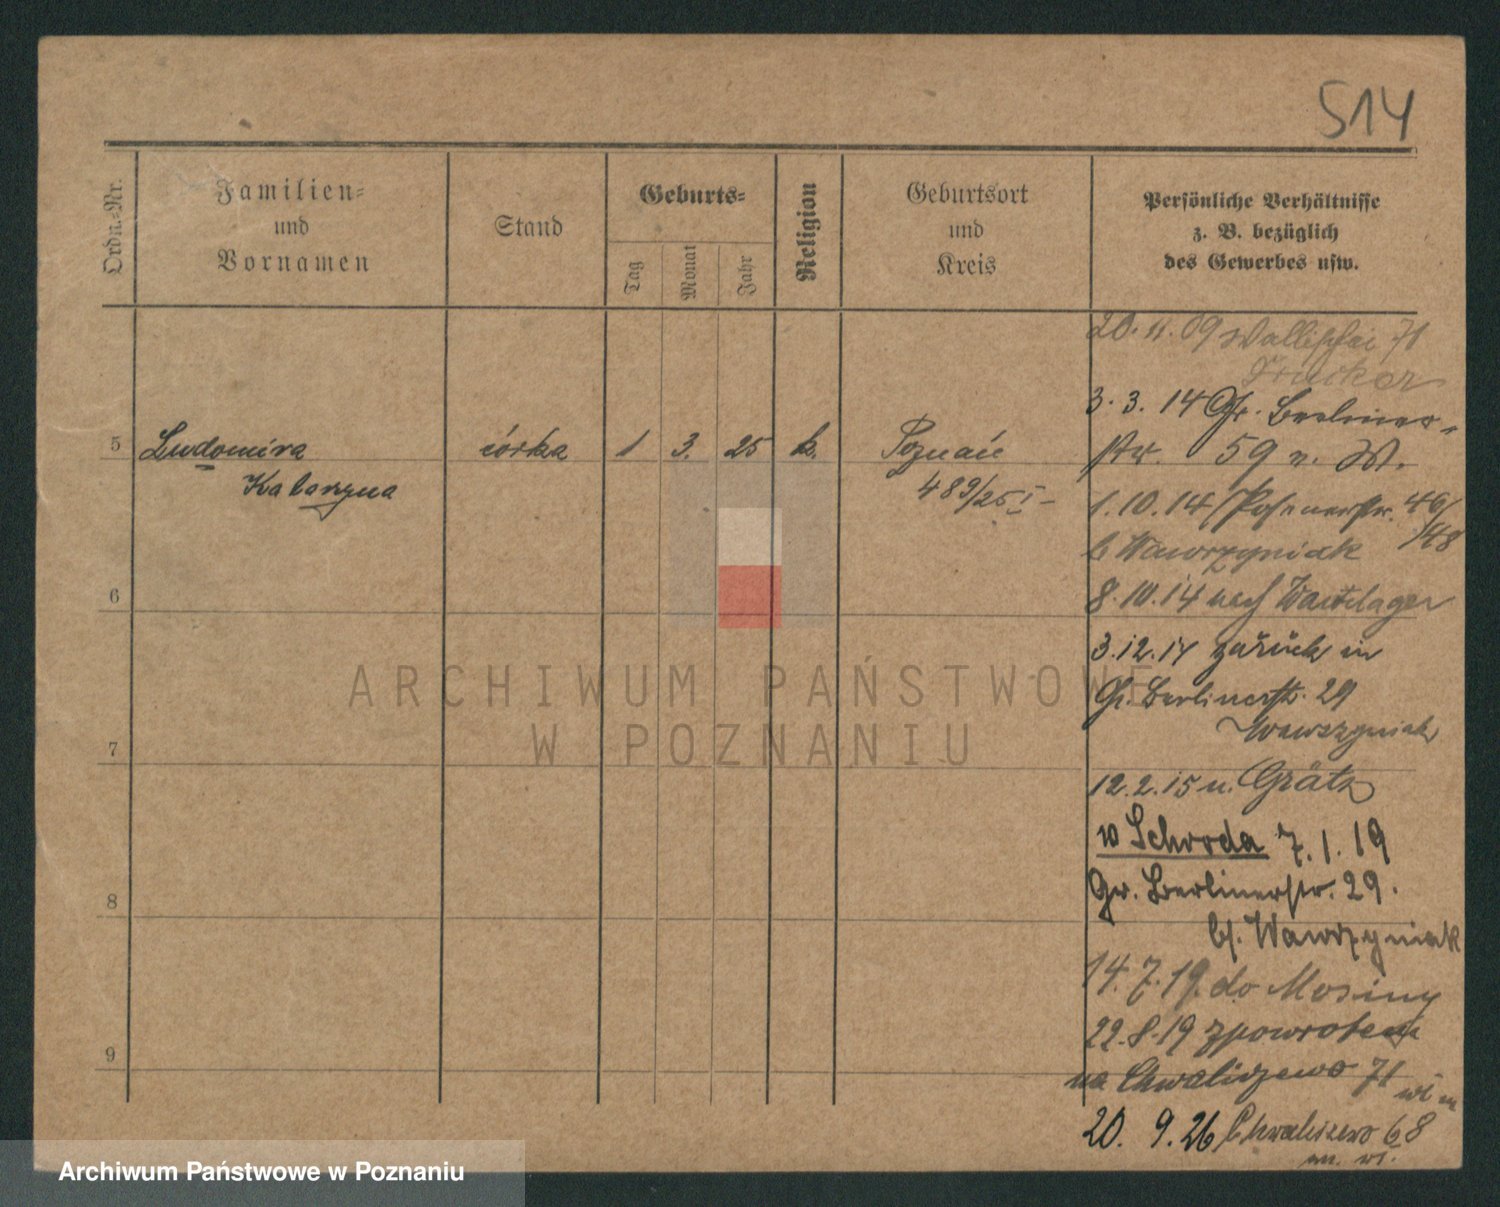 514
Ordn.-Nr.
Familien-
und
Vornamen
Stand
Geburts-
Tag
Monat
Jahr
Religion
Geburtsort
und
Kreis
Persönliche Verhältnisse
z. B. bezüglich
des Gewerbes usw.
20. 11. 09 Wallischei 71
3. 3. 14 Gr. Berliner-
5 Ludomira córka 1 3. 25 k. Poznań
str. 59 n. W.
Katarzyna
489/25 I -
1. 10. 14 Posenerstr. 46/
48
b Wawrzyniak
6
8. 10. 14 nach Warthelager
3. 12. 14 zurück in
Gr. Berlinerstr. 29
Wawrzyniak
7
12. 2. 15 n. Grätz
w Schroda 7. 1. 19
Gr. Berlinerstr. 29.
8
b/. Wawrzyniak
14. 7. 19. do Mosiny
22. 8. 19 zpowrotem
9
na Chwaliszewo 71
20. 9. 26 Chwaliszewo 68
ARCHIWUM PAŃSTWOWE
W POZNANIU
Archiwum Państwowe w Poznaniu